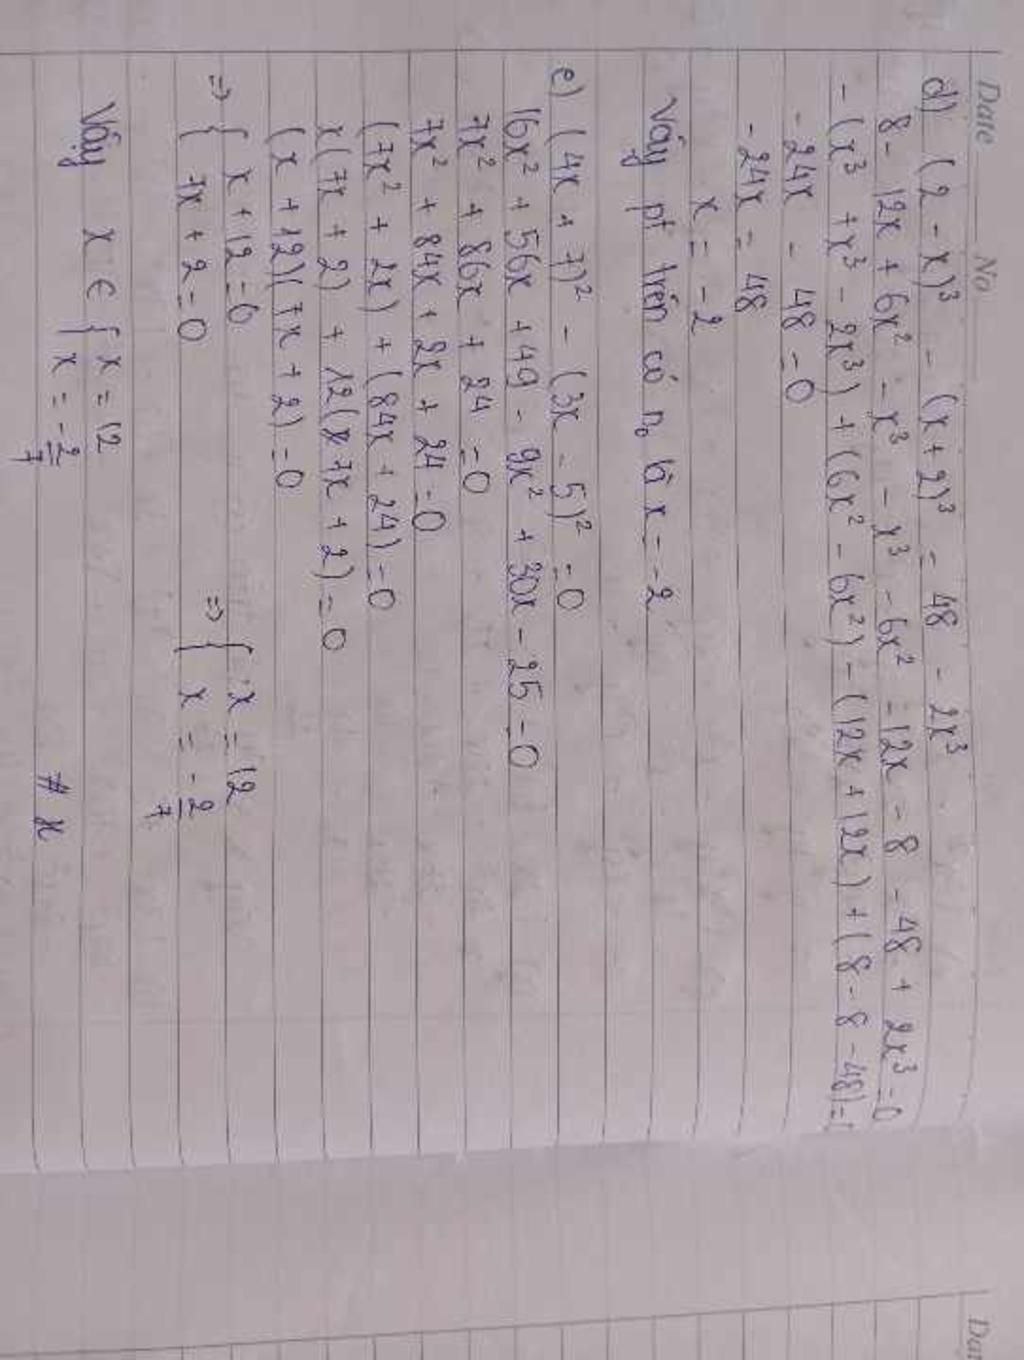 Date No
d) (2 - x)³ - (x + 2)³ = 48 - 2x³
8 - 12x + 6x² - x³ - x³ - 6x² - 12x - 8 - 48 + 2x³ = 0
- (x³ + x³ - 2x³) + (6x² - 6x²) - (12x + 12x) + (8 - 8 - 48) =
- 24x - 48 = 0
- 24x = 48
x = -2
Vậy pt trên có n₀ là x = -2
e) (4x + 7)² - (3x - 5)² = 0
16x² + 56x + 49 - 9x² + 30x - 25 = 0
7x² + 86x + 24 = 0
7x² + 84x + 2x + 24 = 0
(7x² + 2x) + (84x + 24) = 0
x(7x + 2) + 12(7x + 2) = 0
(x + 12)(7x + 2) = 0
=> { x + 12 = 0 => { x = 12
7x + 2 = 0 x = -2/7
Vậy x ∈ { x = 12
x = -2/7
Dat